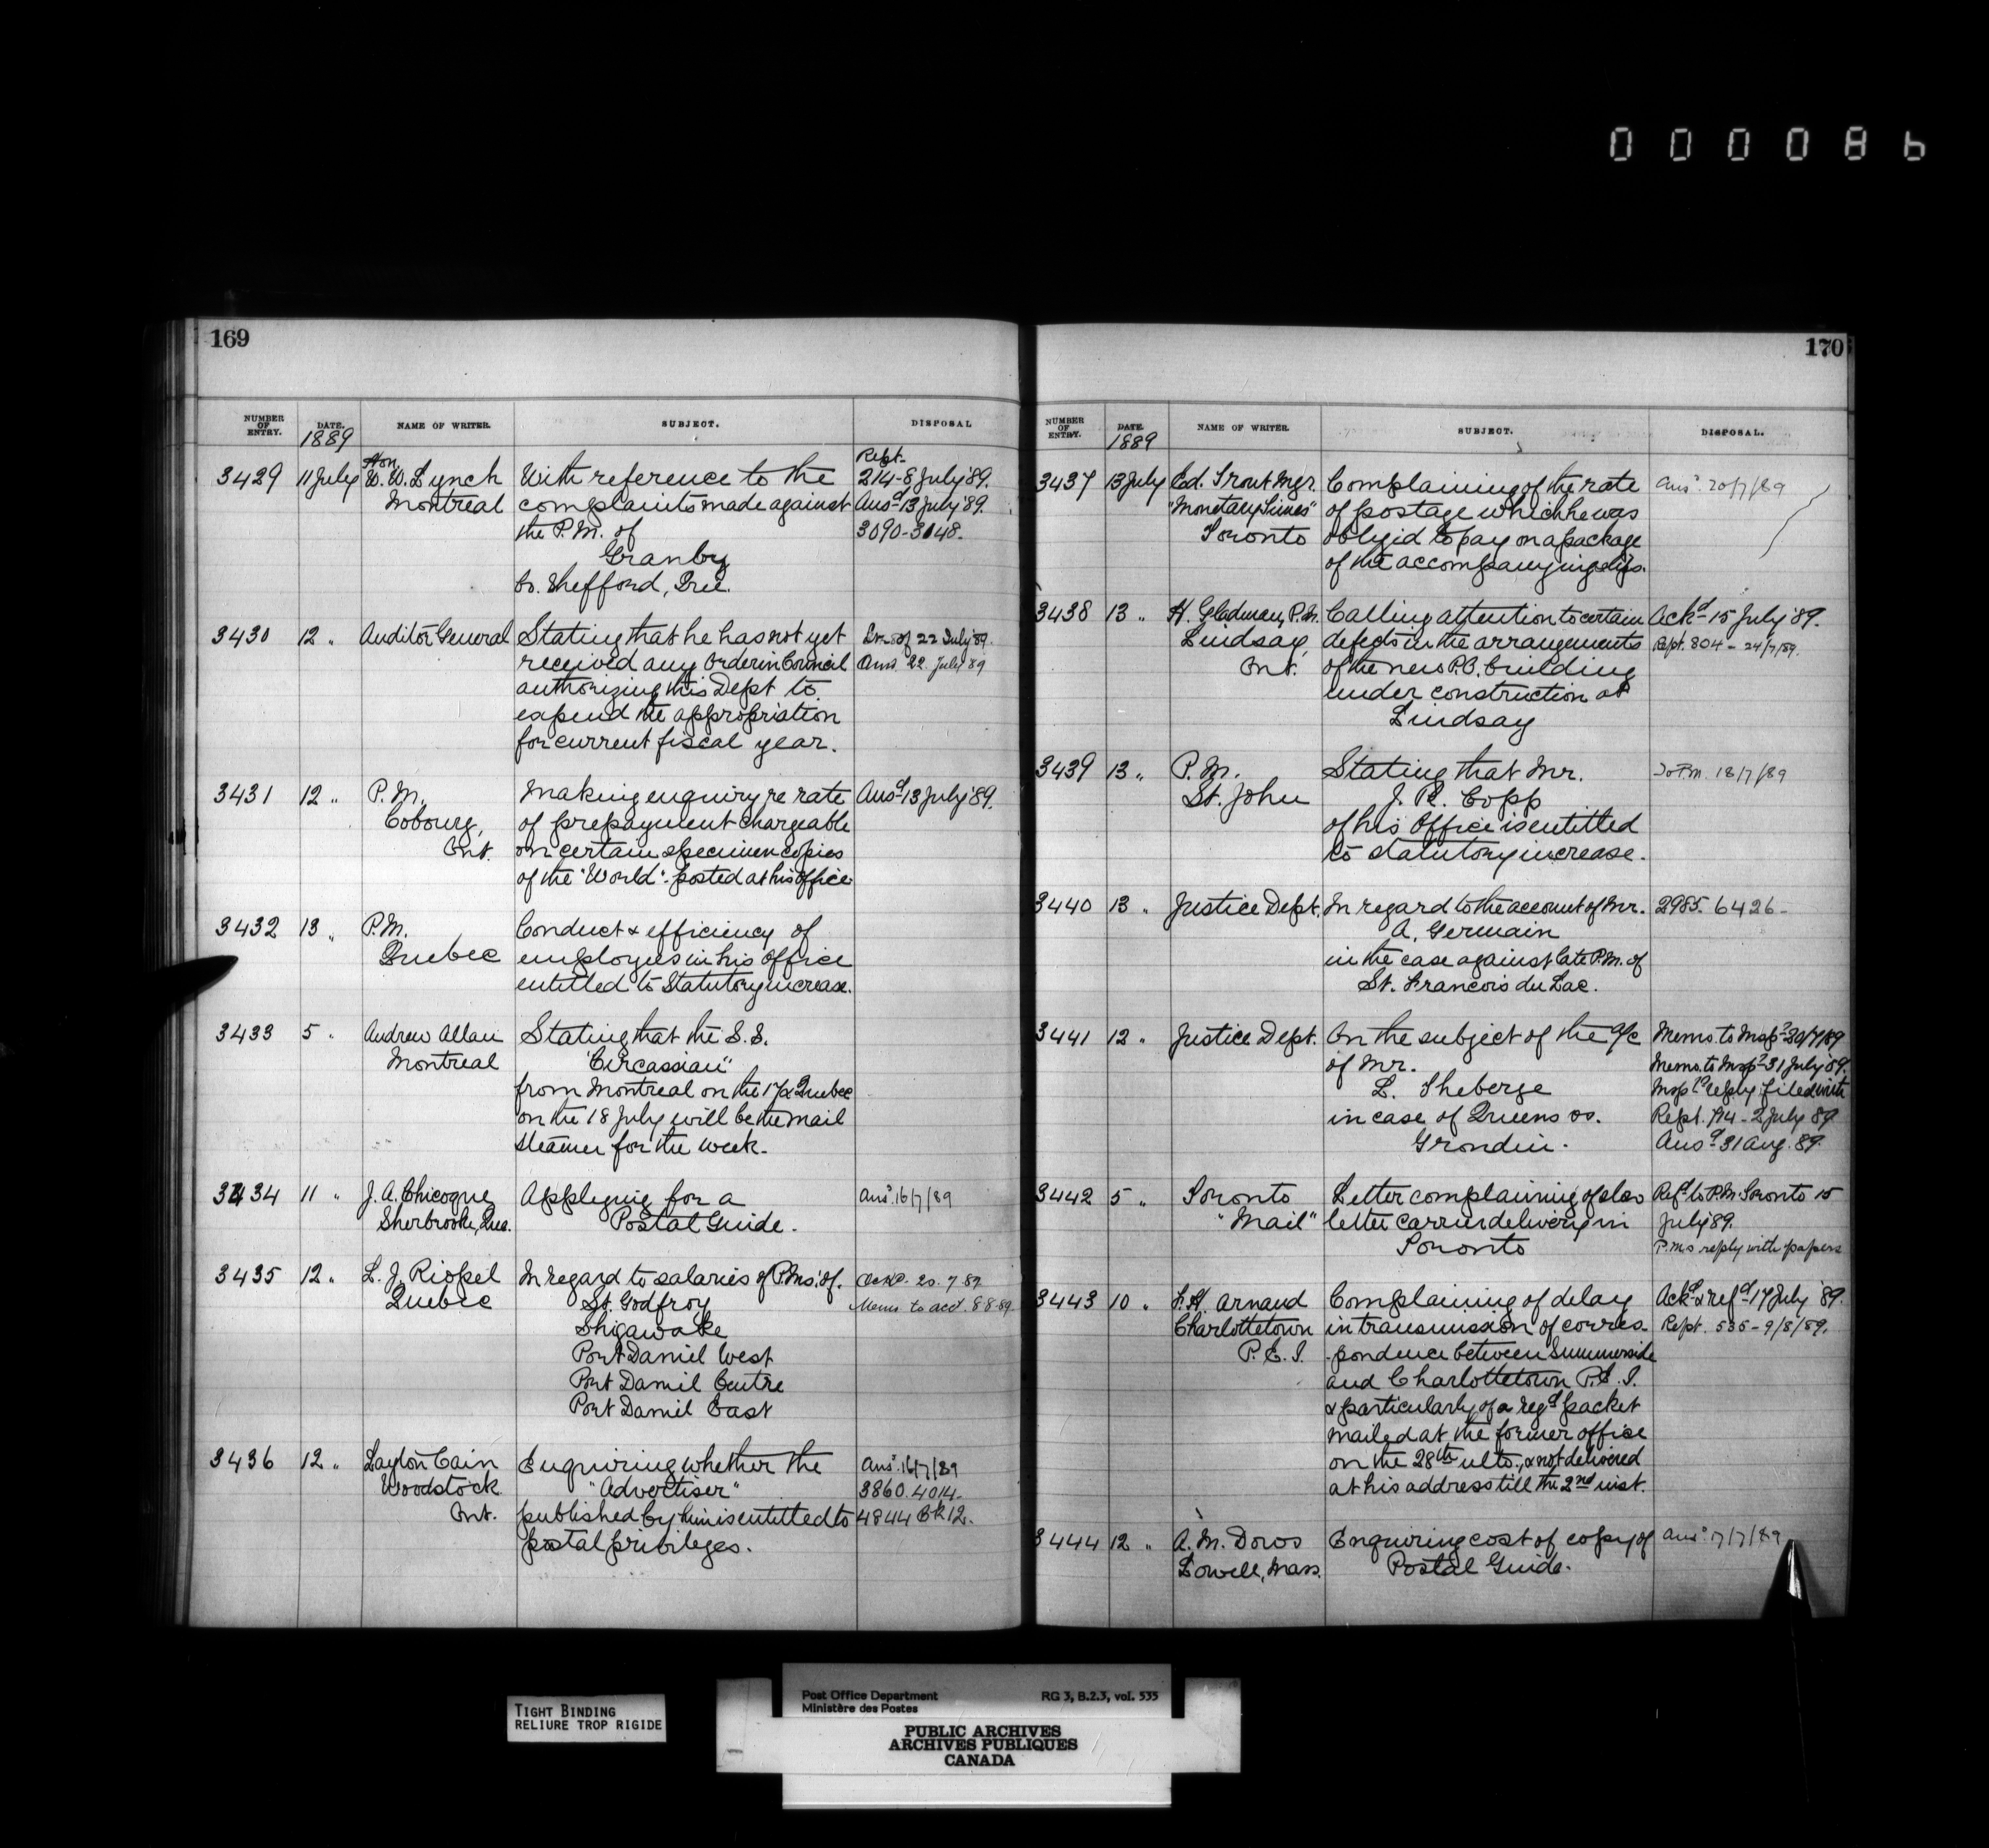 000086
169
NUMBER OF ENTRY. DATE. NAME OF WRITER. SUBJECT. DISPOSAL
1889
3429 11 July Hon W. W. Lynch With reference to the Rept-
Montreal complaints made against 214-8 July '89.
the P.M. of Ansd 13 July '89.
Granby 3090-3148.
Co. Shefford, Que.
3430 12 " Auditor General Stating that he has not yet 22 July '89.
received any Order in Council Ansd 22 July 89
authorizing this Dept to
expend the appropriation
for current fiscal year.
3431 12 " P.M. Making enquiry re rate Ansd 13 July '89.
Cobourg, of prepayment chargeable
Ont. on certain specimen copies
of the "World" posted at his office
3432 13 " P.M. Conduct & efficiency of
Quebec employees in his office
entitled to Statutory increase.
3433 5 " Andrew Allan Stating that the S.S.
Montreal "Circassian"
from Montreal on the 17 & Quebec
on the 18 July will be the mail
steamer for the week.
3434 11 " J. A. Chicogne Applying for a Ansd 16/7/89
Sherbrooke, Que. Postal Guide.
3435 12 " L. J. Riopel In regard to salaries of P.Ms. of Ackd. 20.7.89
Quebec St. Godfroy Memo to acct. 8-8-89
Shigawake
Port Daniel West
Port Daniel Centre
Port Daniel East
3436 12 " Layton Cain Enquiring whether the Ansd 16/7/89
Woodstock "Advertiser" 3860.4014.
Ont. published by him is entitled to 4844 Bk 12.
postal privileges.
170
NUMBER OF ENTRY. DATE. NAME OF WRITER. SUBJECT. DISPOSAL.
1889
3437 13 July Ed. Trout Mgr. Complaining of the rate Ansd 20/7/89
"Monetary Times" of postage which he was
Toronto obliged to pay on a package
of the accompanying slips.
3438 13 " H. Gladman, P.M. Calling attention to certain Ackd 15 July '89.
Lindsay, defects in the arrangements Rept. 804 - 24/7/89.
Ont. of the new P.O. building
under construction at
Lindsay
3439 13 " P.M. Stating that Mr. To P.M. 18/7/89
St. John J. R. Copp
of his office is entitled
to statutory increase.
3440 13 " Justice Dept. In regard to the account of Mr. 2985. 6426-
A. Germain
in the case against late P.M. of
St. Francois du Lac.
3441 12 " Justice Dept. On the subject of the a/c Memo. to Inspr 20/7/89
of Mr. Memo. to Inspr 31 July '89.
L. Theberge Inspr's reply filed with
in case of Queens vs. Rept. 194 - 2 July 89
Grondin. Ansd 31 Aug. 89.
3442 5 " Toronto Letter complaining of slow Refd to P.M. Toronto 15
"Mail" letter carrier delivery in July '89.
Toronto P.M.s reply with papers
3443 10 " F. H. Arnaud Complaining of delay Ackd & refd 17 July '89.
Charlottetown in transmission of corres- Rept. 535 - 9/8/89.
P.E.I. pondence between Summerside
and Charlottetown P.E.I.
& particularly of a regd packet
mailed at the former office
on the 28th ulto., & not delivered
at his address till the 2nd inst.
3444 12 " A. M. Dows Enquiring cost of copy of Ansd 17/7/89
Lowell, Mass. Postal Guide.
TIGHT BINDING
RELIURE TROP RIGIDE
Post Office Department RG 3, B.2.3, vol. 535
Ministère des Postes
PUBLIC ARCHIVES
ARCHIVES PUBLIQUES
CANADA